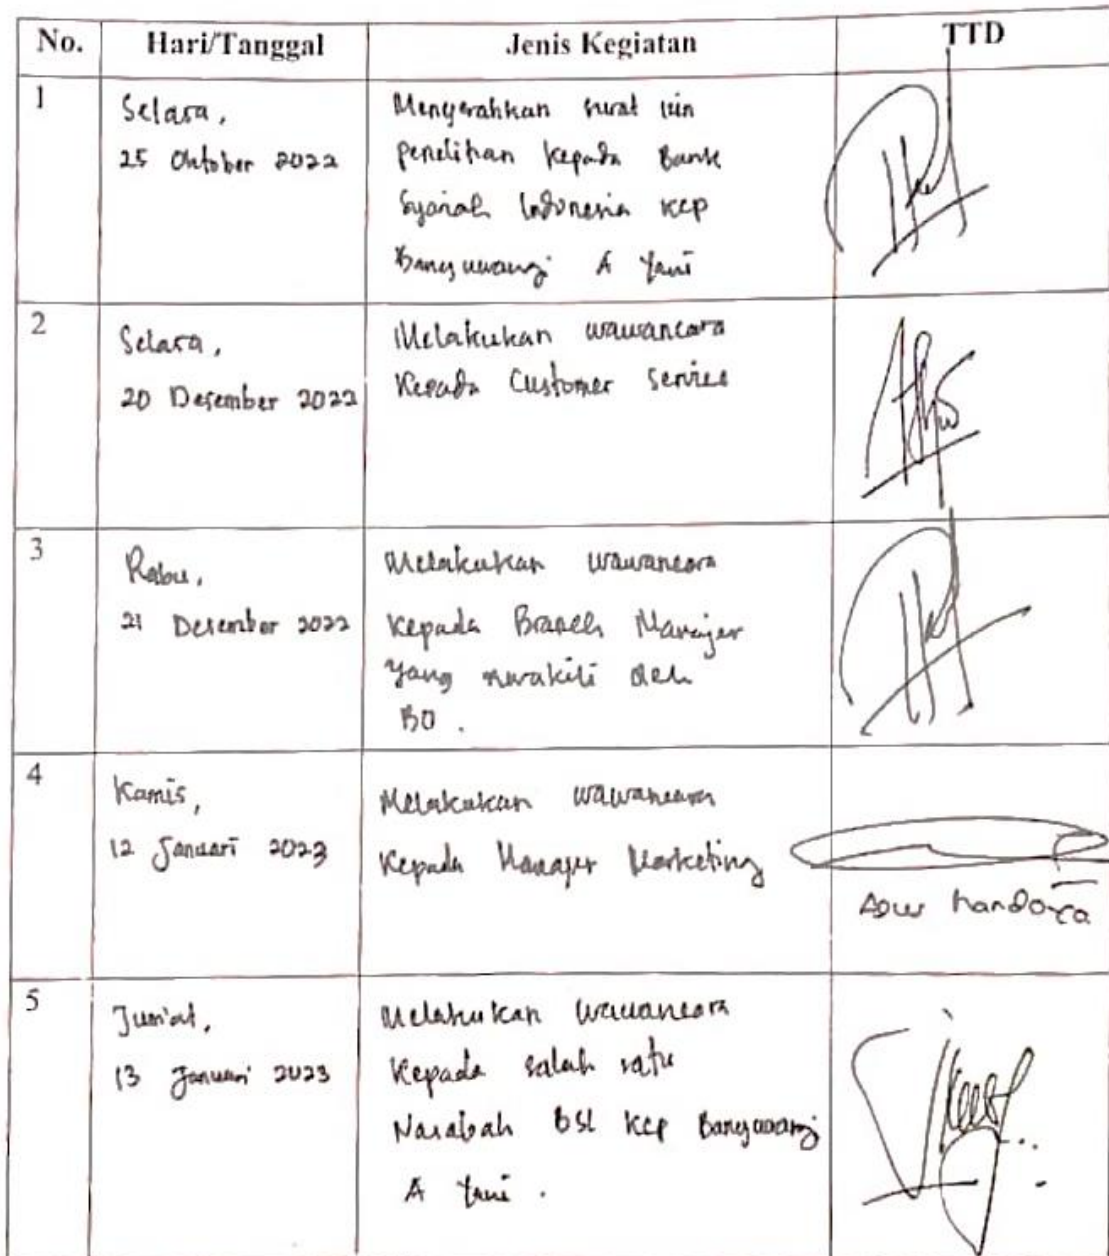 No. Hari/Tanggal Jenis Kegiatan TTD
1
Selasa,
25 Oktober 2022
Menyerahkan surat izin
penelitian kepada Bank
Syariah Indonesia KCP
Banyuwangi A Yani
2
Selasa,
20 Desember 2022
Melakukan wawancara
Kepada Customer Service
3
Rabu,
21 Desember 2022
Melakukan wawancara
kepada Branch Manajer
yang mewakili oleh
BO.
4
Kamis,
12 Januari 2023
Melakukan wawancara
Kepada Manajer Marketing
5
Jum'at,
13 Januari 2023
Melakukan wawancara
Kepada salah satu
Nasabah BSI KCP Banyuwangi
A Yani.